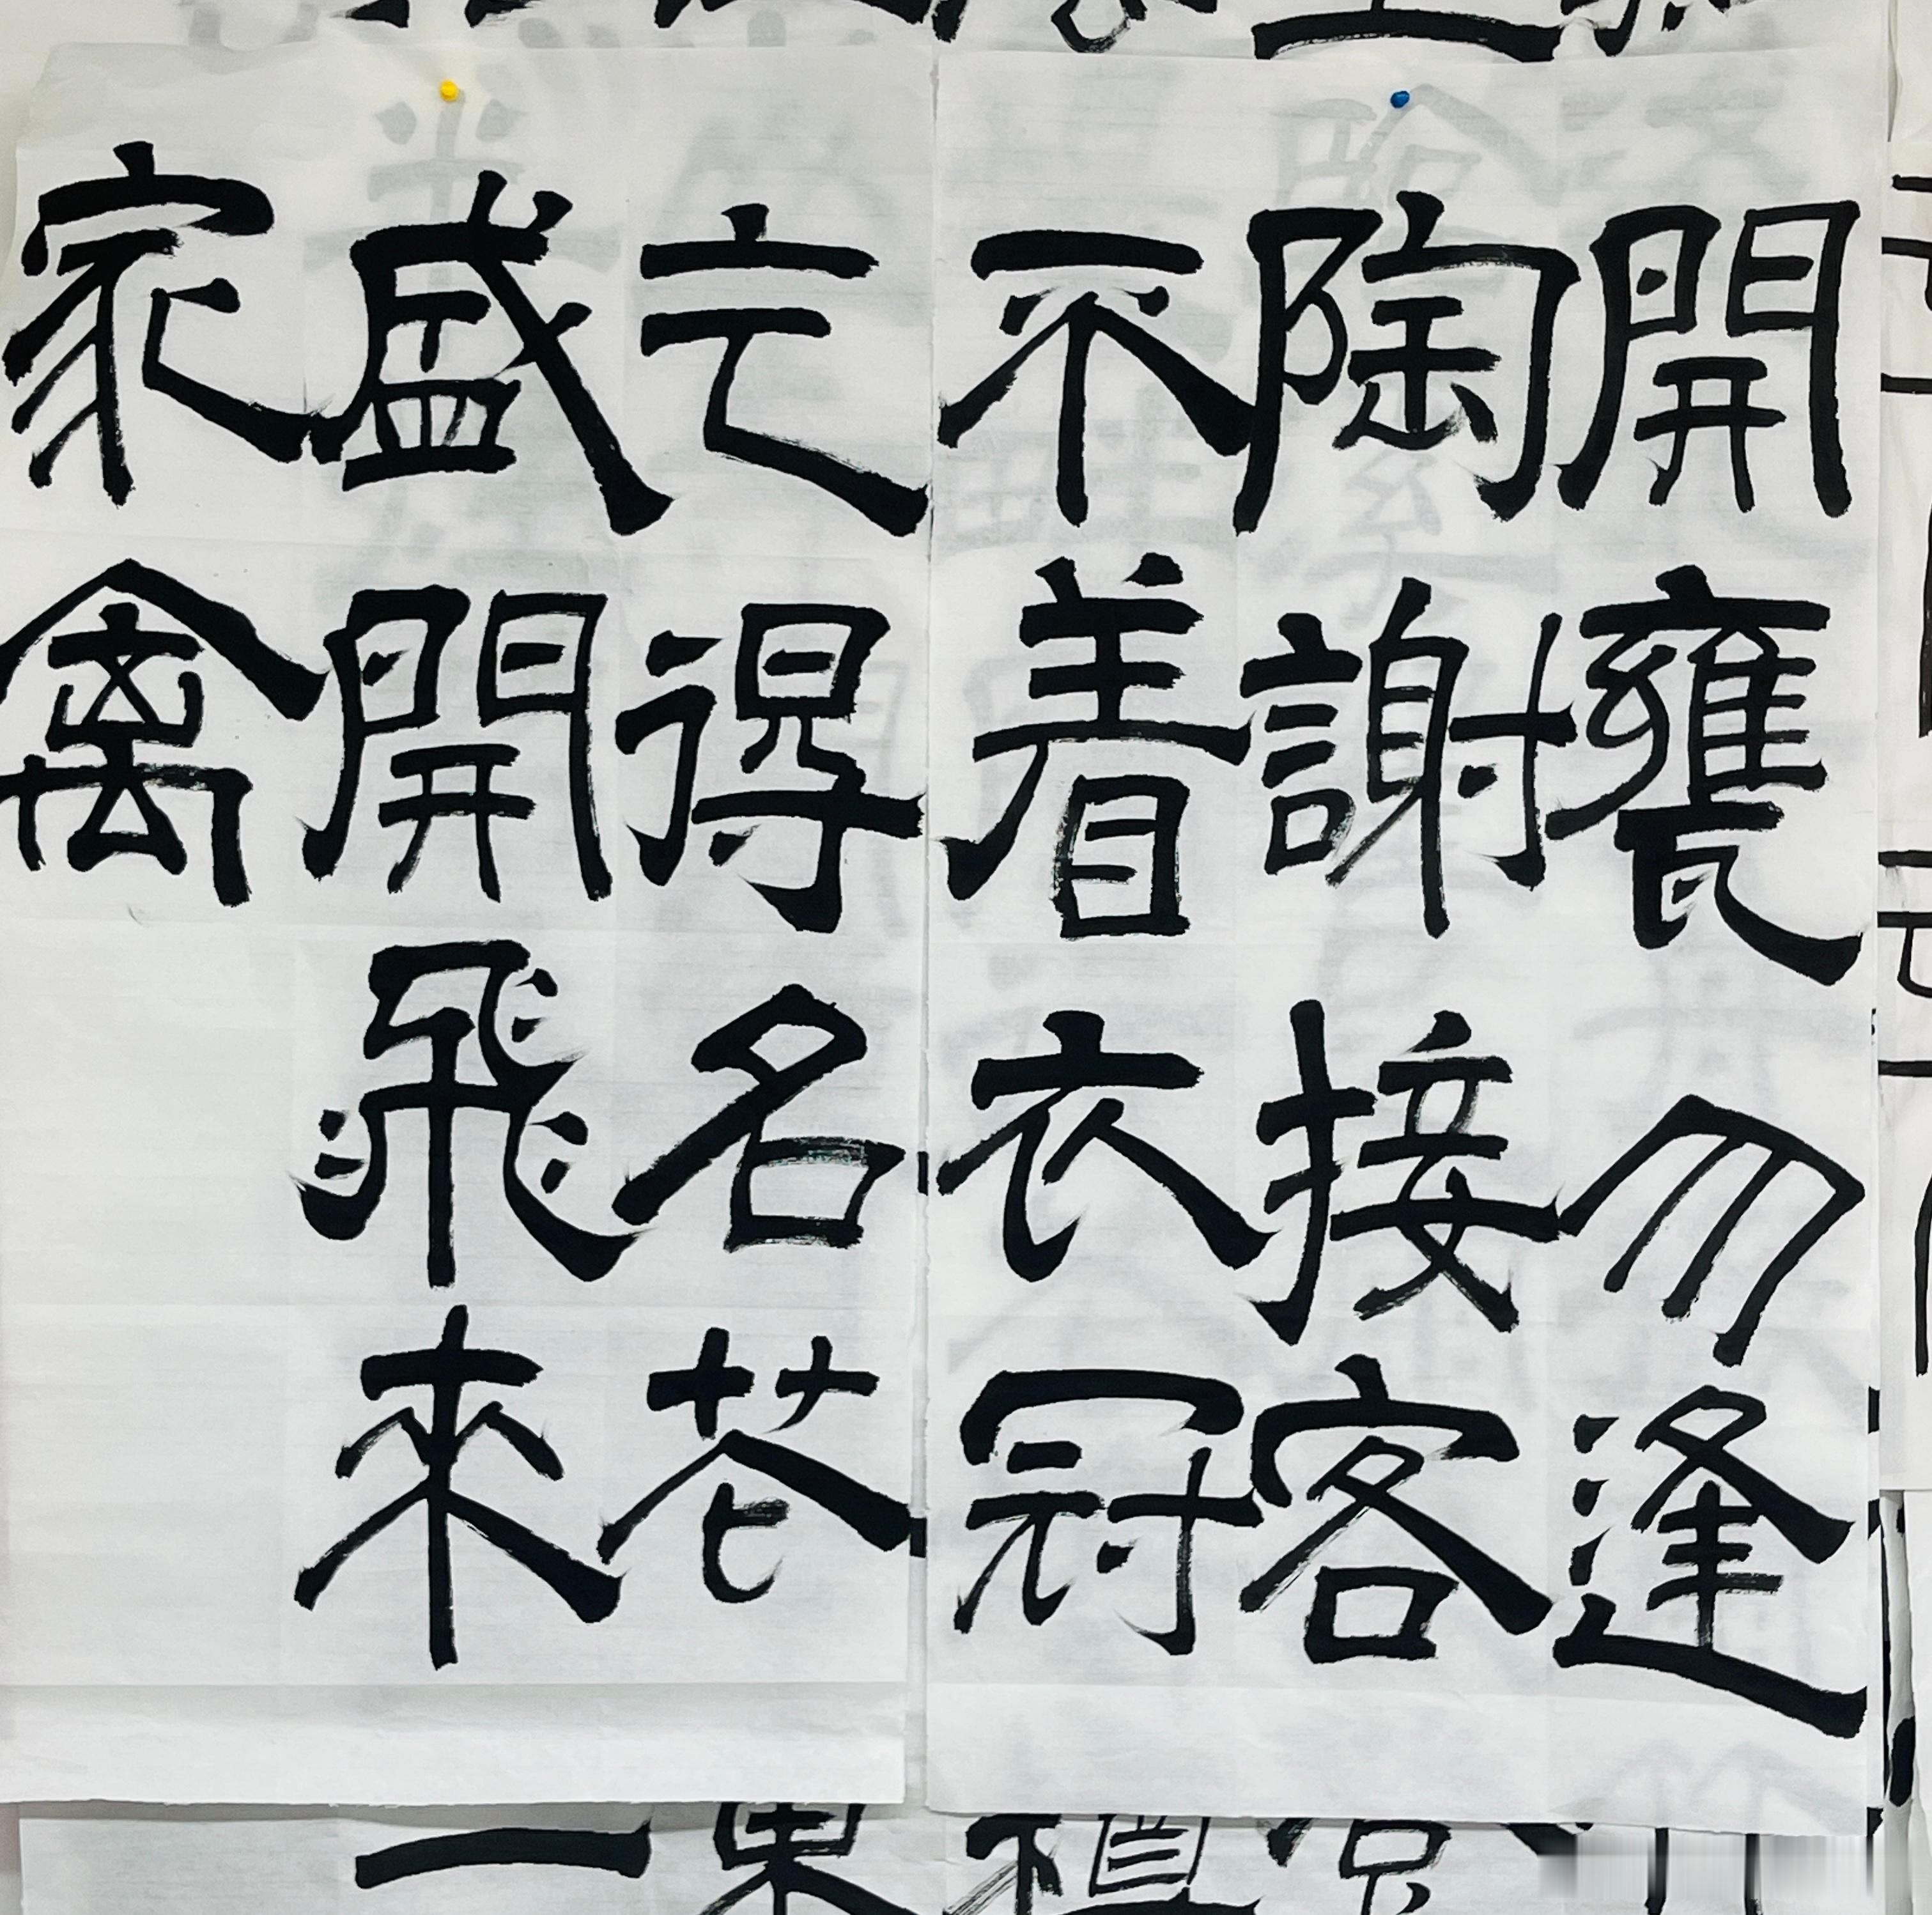 開甕勿逢
陶謝接客
不着衣冠
乞得名花
盛開飛來
家禽